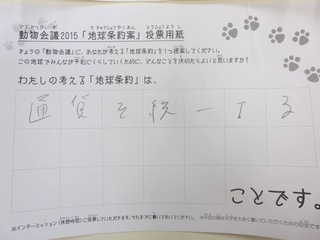 動物会議2015「地球条約案」投票用紙
きょうの「動物会議」に、あなたが考える「地球条約」を1つ提案してください。
この地球でみんなが平和にくらしていくために、どんなことを決めたらよいと思いますか?
わたしの考える「地球条約」は、
通貨を統一する
ことです。